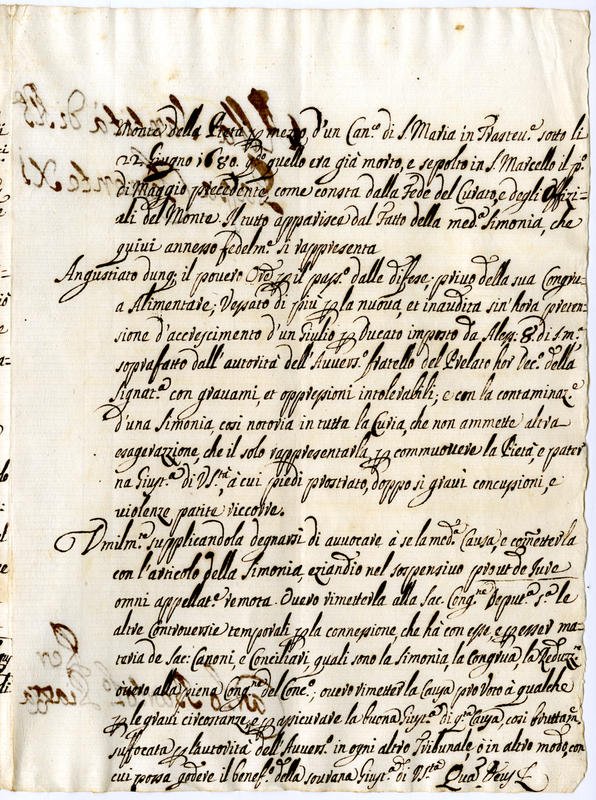 Monte della Pietà p mezzo d'un Can.co di S. Maria in Trasteu.e sotto li
22. Giugno 1680. quello era già morto, e sepolto in S. Marcello il p.o
di Maggio precedente, come consta dalla Fede del Curato, e degli Offizi-
ali del Monte. Il tutto apparisce dal Fatto della med.a Simonia, che
quiui annesso fedelm.e si rappresenta
Angustiato dunq; il pouero Ore p il pass.o dalle difese, priuo della sua Congru-
a Alimentare, Vessato di più p la nuoua, et inaudita sin' hora preten-
sione d'accrescimento d'un Giulio p Ducato imposto da Aless. 8. di s.m.
soprafatto dall'autorità dell'Auuers.o fratello del Prelato hor Dec.o della
Signat.a con grauami, et oppressioni intolerabili; e con la contaminaz.e
d'una Simonia, così notoria in tutta la Curia, che non ammette altra
esagerazione, che il solo rappresentarla, p commuouere la Pietà, e pater
na Giust.a di V. S.tà, à cui piedi prostrato, doppo sì graui concussioni, e
uiolenze patite riccorre.
Vmilm.e supplicandola degnarsi di auuocare à se la med.a Causa, e cometterla
con l'articolo della Simonia, eziandio nel sospensiuo prout de Jure
omni appellat.e remota. Ouero rimetterla alla Sac. Cong.ne Deput.a s.a le
altre Controuersie temporali p la connessione, che hà con esse, e p esser ma-
teria de Sac: Canoni, e Conciliari, quali sono la Simonia, la Congrua, la Reduz.ne
ouero alla piena Cong.ne del Conc.o; ouero rimetter la Causa pro uoto à qualche
p le graui circostanze, e p assicurare la buona Giust.a di q.a Causa, così bruttam.e
suffocata p l'autorità dell'Auuers.o in ogni altro Tribunale, ò in altro modo, con
cui possa godere il benef.o della sourana Giust.a di V. S.tà Quã Deus &